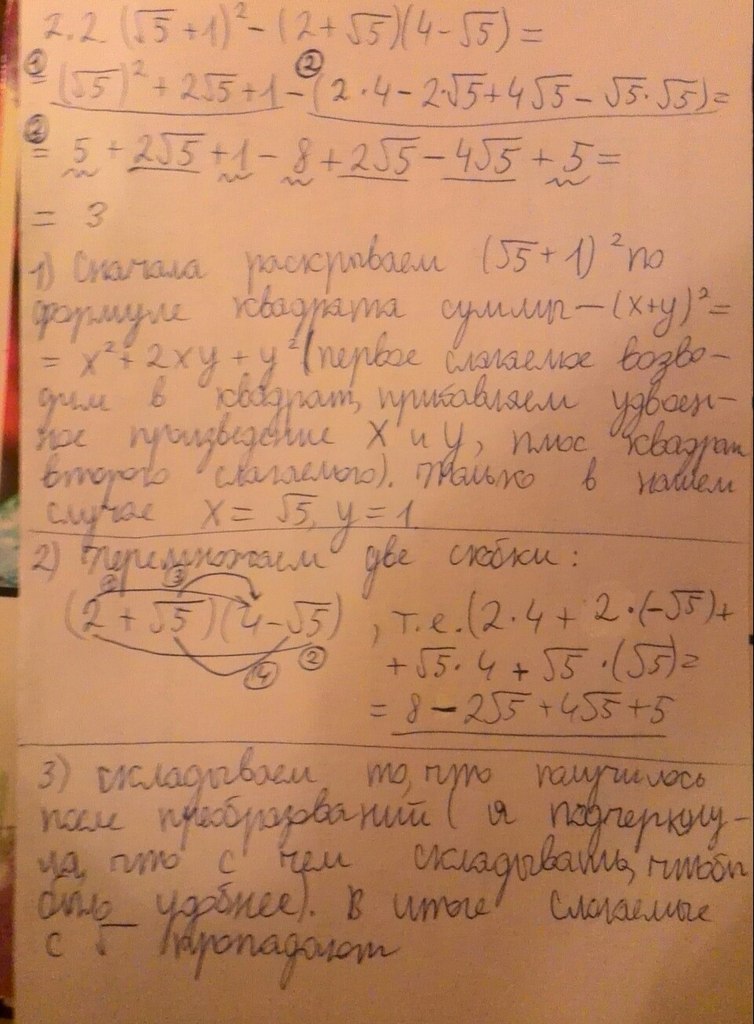 2.2 (√5 + 1)² - (2 + √5)(4 - √5) =
① = (√5)² + 2√5 + 1 - ② (2 · 4 - 2·√5 + 4√5 - √5 · √5) =
② = 5 + 2√5 + 1 - 8 + 2√5 - 4√5 + 5 =
= 3
1) Сначала раскрываем (√5 + 1)² по
формуле квадрата суммы — (x+y)² =
= x² + 2xy + y² (первое слагаемое возво-
дим в квадрат, прибавляем удвоен-
ное произведение x и y, плюс квадрат
второго слагаемого). Только в нашем
случае x = √5, y = 1
2) Перемножаем две скобки:
(2 + √5)(4 - √5), т.е. (2·4 + 2·(-√5) +
③ ④ ②
+ √5 · 4 + √5 · (√5) =
= 8 - 2√5 + 4√5 + 5
3) складываем то, что получилось
после преобразований (я подчеркну-
ла, что с чем складывать, чтобы
было удобнее). В итоге слагаемые
с √ пропадают